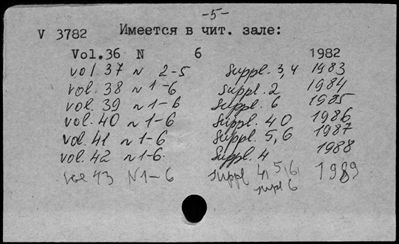 -5-
V 3782 Имеется в чит. зале:
Vol.36 N 6 1982
vol 37 N 2-5 Suppl. 3,4 1983
vol. 38 N 1-6 Suppl. 2 1984
vol. 39 N 1-6 Suppl. 6 1985
vol. 40 N 1-6 Suppl. 4 1986
vol. 41 N 1-6 Suppl. 5,6 1987
vol. 42 N 1-6 Suppl. 4 1988
vol 43 N 1-6 Suppl 5,6 1989